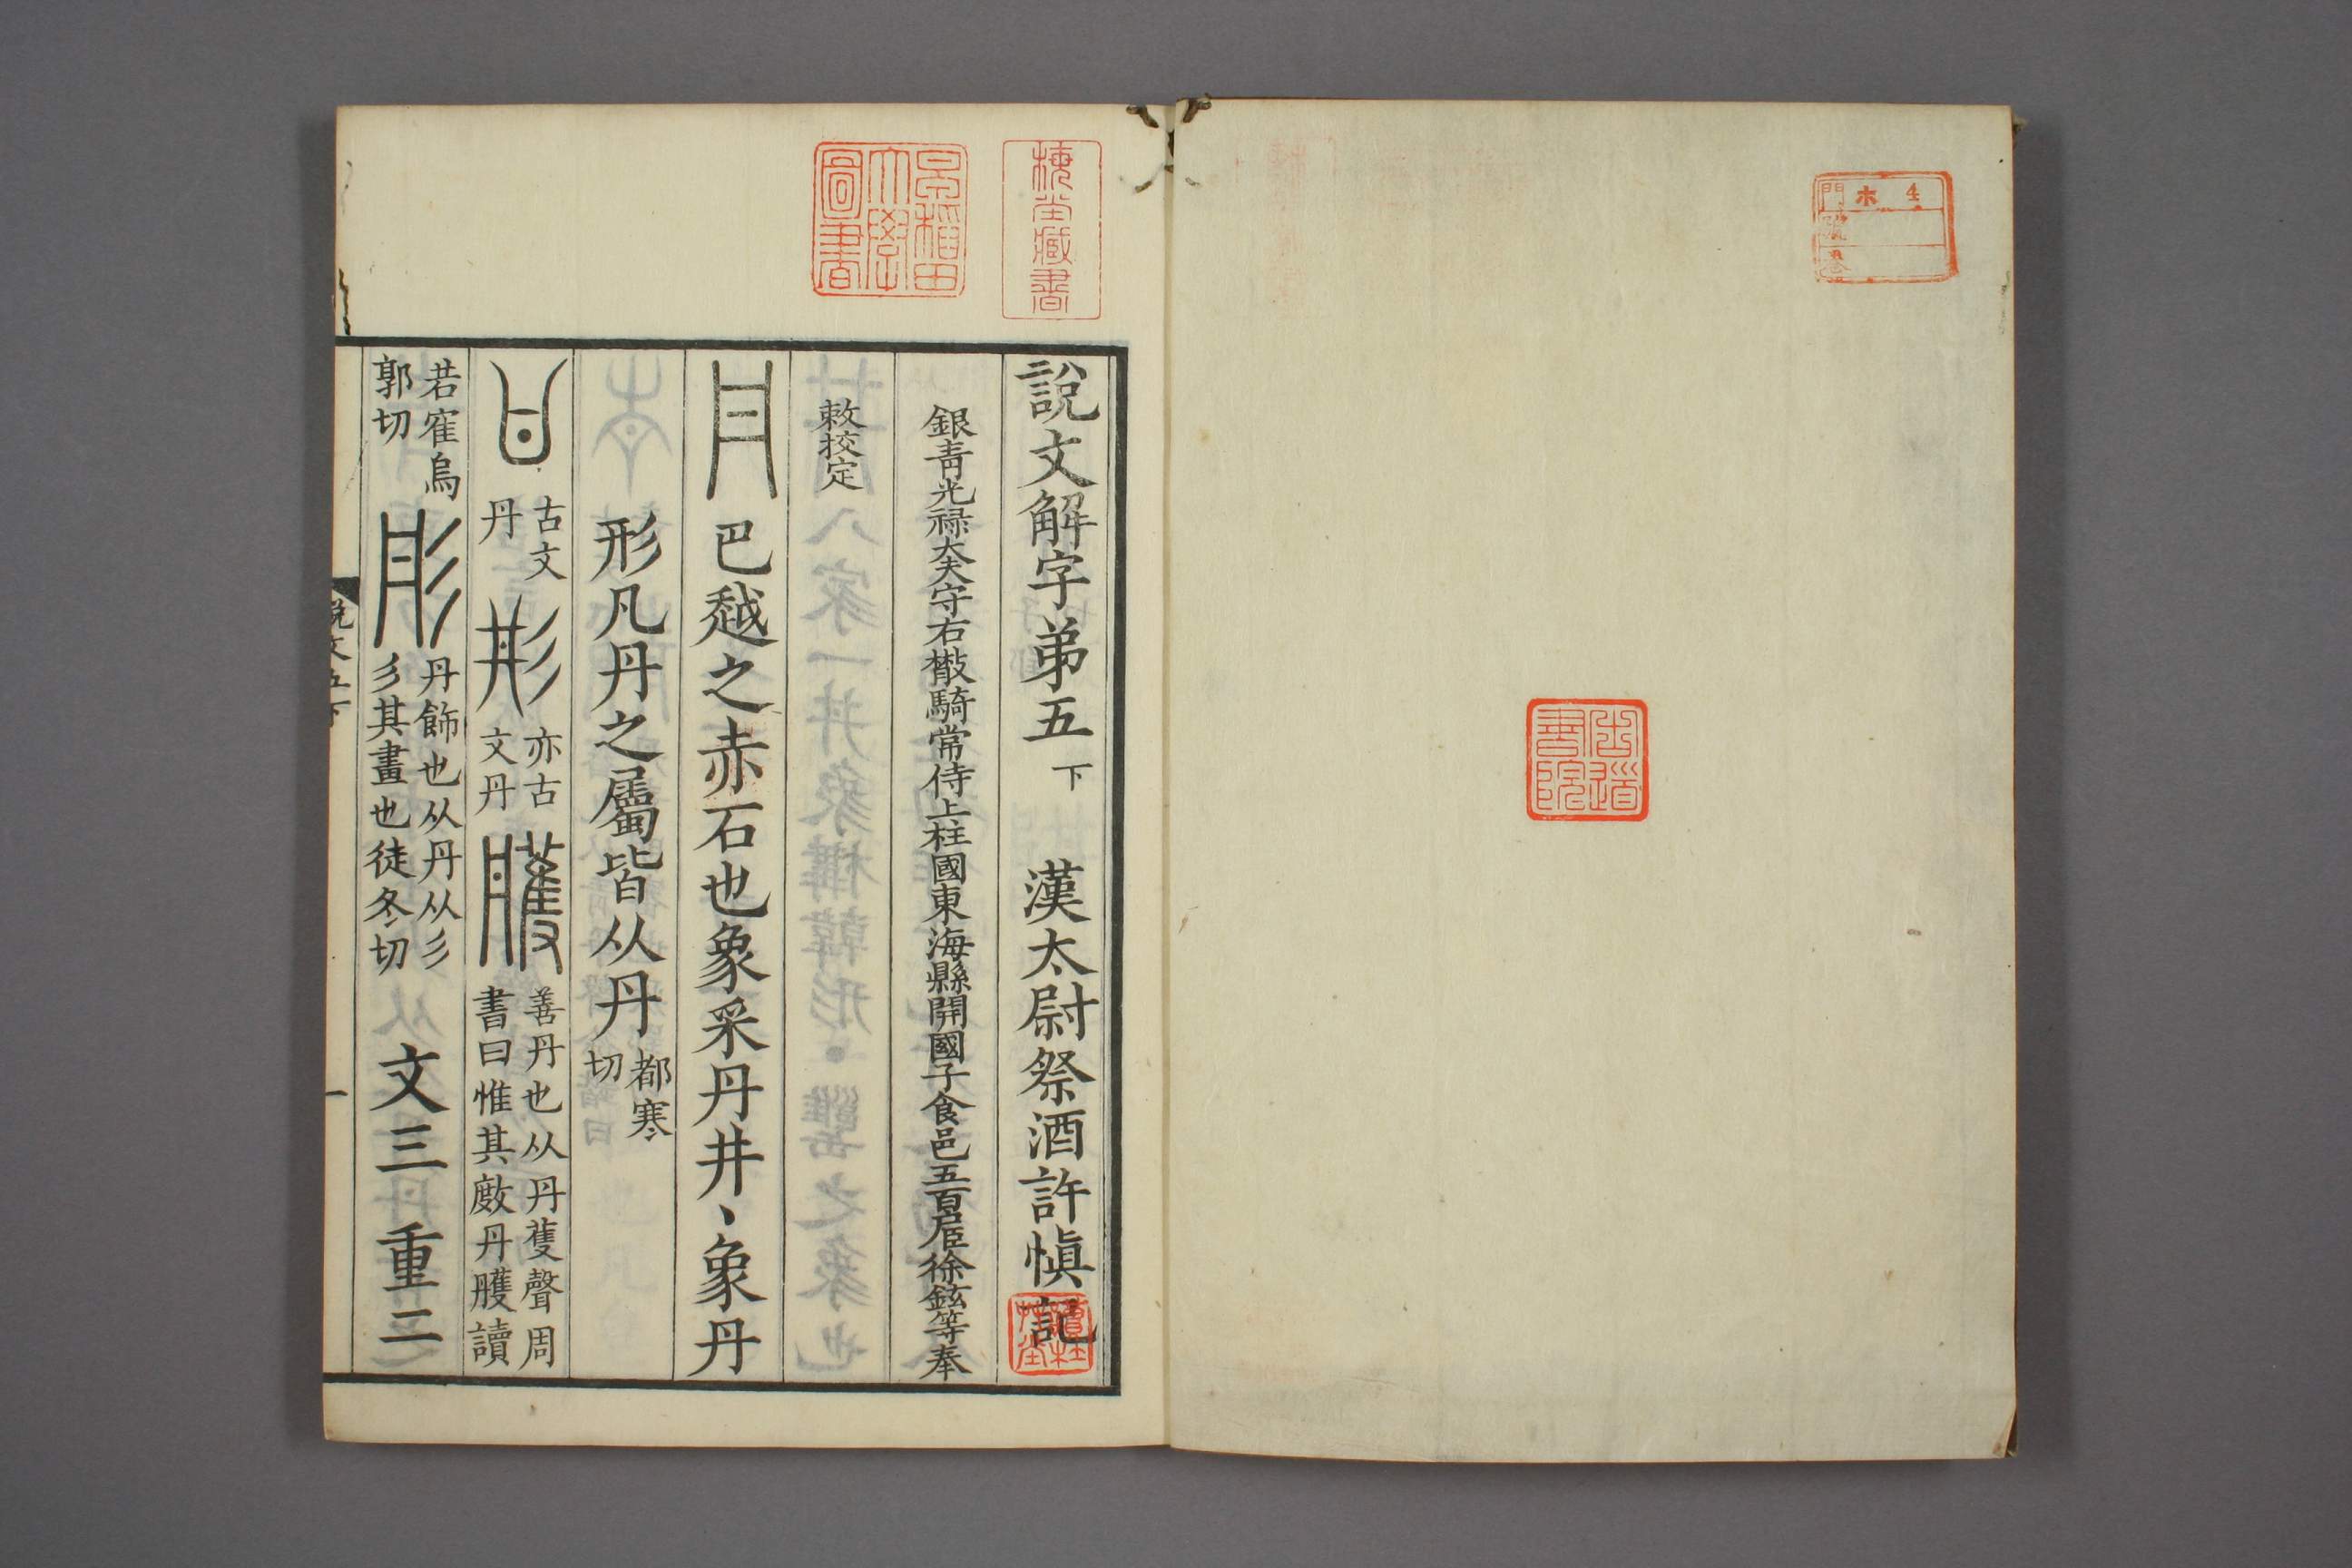 4
木
門
號
梅堂藏書
早稻田大學圖書
說文解字弟五下 漢太尉祭酒許愼記
銀青光祿大夫守右散騎常侍上柱國東海縣開國子食邑五百戶臣徐鉉等奉
敕校定
丹 巴越之赤石也象采丹井丶象丹
形凡丹之屬皆从丹 都寒切
古文丹 亦古文丹 雘 善丹也从丹蒦聲周書曰惟其敿丹雘讀
若隺烏郭切 彤 丹飾也从丹从彡彡其畫也徒冬切 文三 重二
說文五下
一